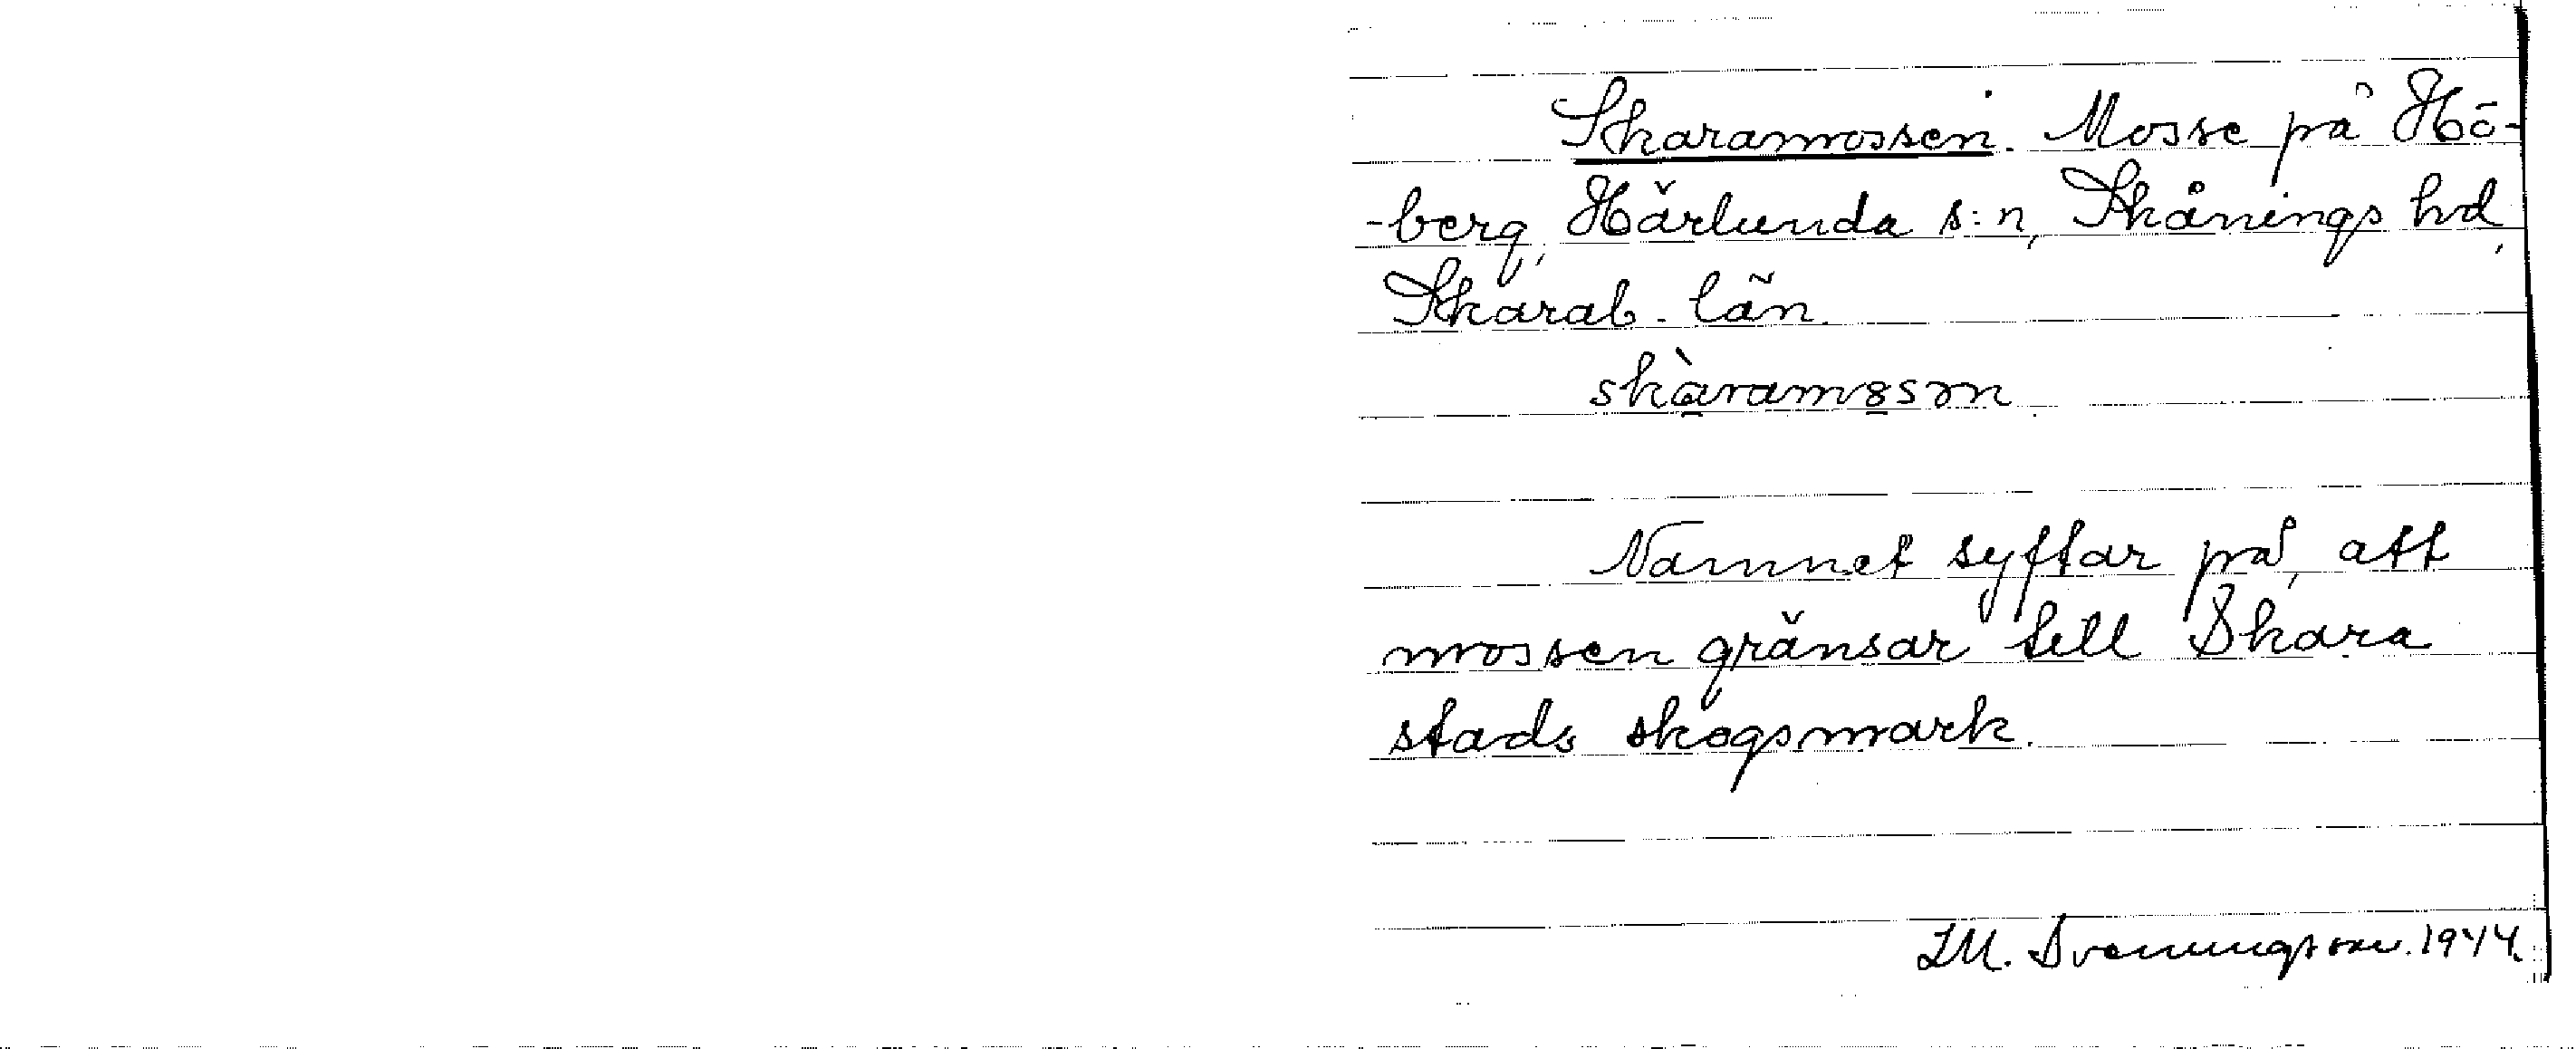 Skaramossen. Mosse på Hö-
-berg, Härlunda s:n, Skånings hd,
Skarab. län.
skàramꝏsən
Namnet syftar på, att
mossen gränsar till Skara
stads skogsmark.
I.M. Svenungsson. 1944.